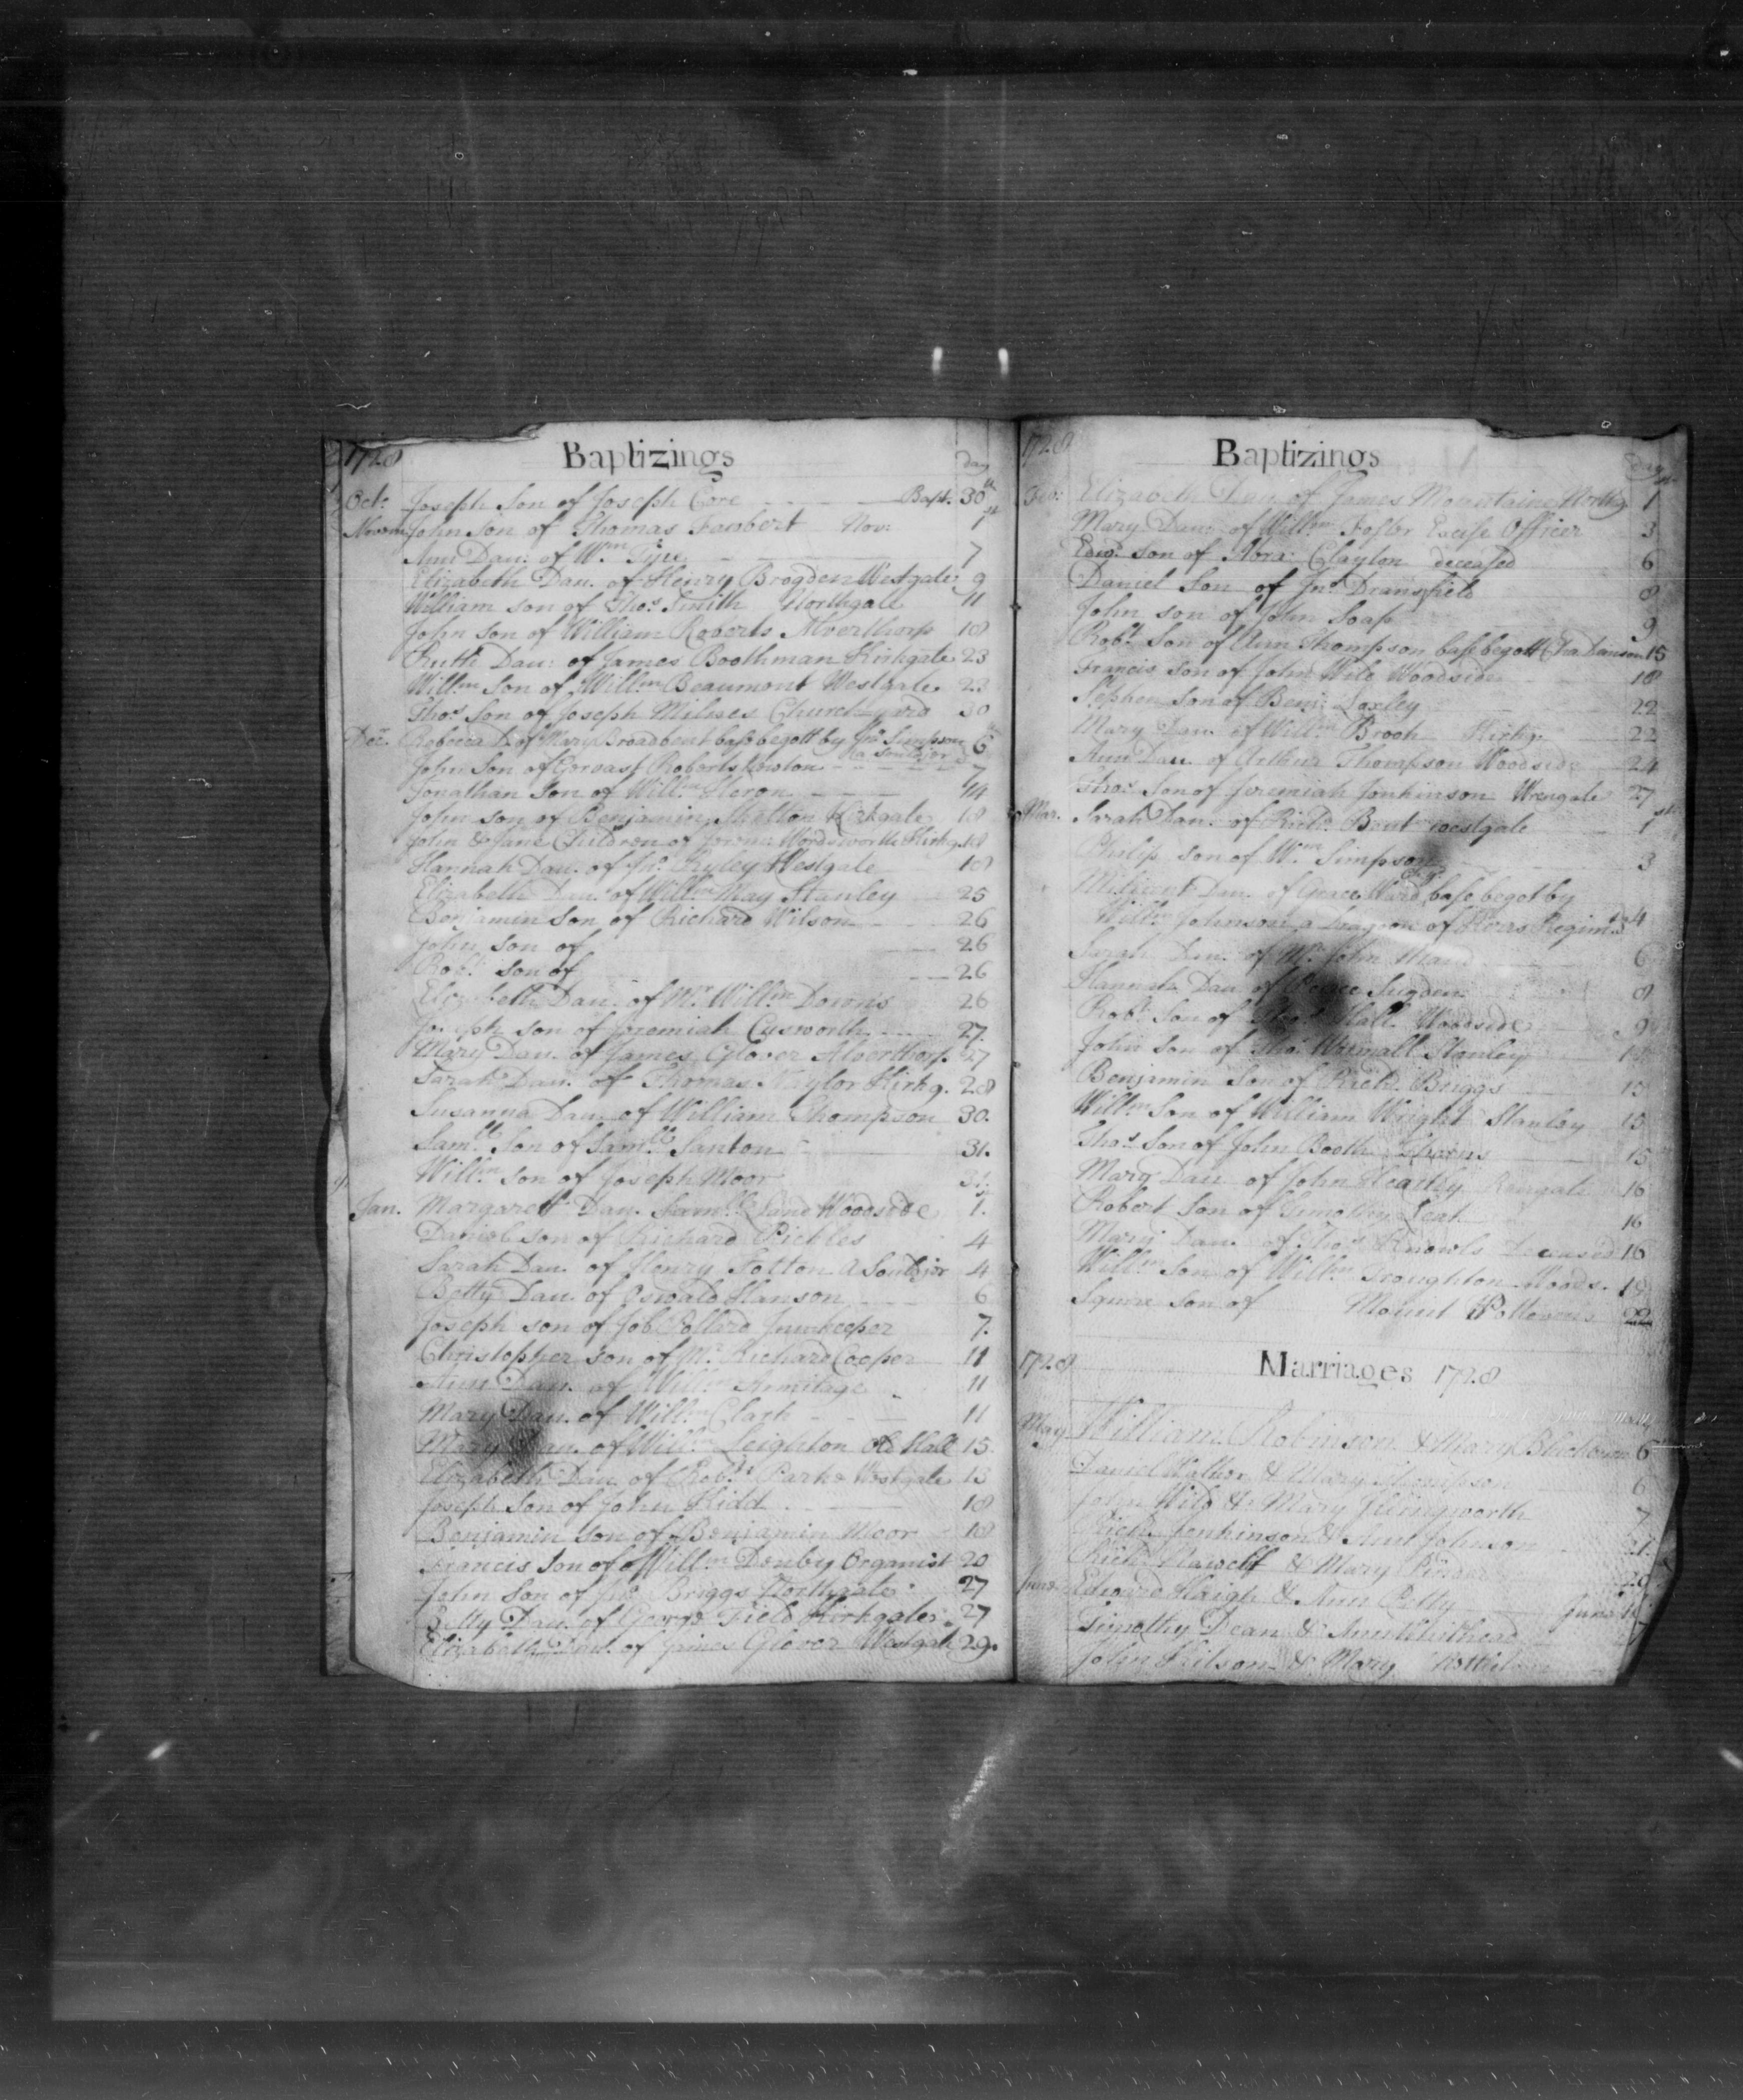 1728 Baptizings day
Oct: Joseph Son of Joseph Core Bapt. 30th
Novem John Son of Thomas Nov: 1st
Ann Dau: of Wm Tyu 7
Elizabeth Dau. of Henry Brogden Westgate 9
William son of Thos. Smith Northgate 11
John Son of William Roberts Alverthorp 18
Ruth Dau: of James Boothman Kirkgate 23
Willm Son of Willm Beaumont Westgate 23
Thos Son of Joseph Milnes Church yard 30
Decr. Rebecca D. of Mary Broadbent base begott by Jno Simpson 6th
a Souldjer
John Son of Gervast Roberts 7
Jonathan Son of Willm Heron 14
John son of Benjamin Skelton Kirkgate 18
John & Jane Children of Jerem: Wordsworth Kirkg. 18
Hannah Dau. of Jno. Ryley Westgate 18
Elizabeth Dau. of Willm May Stanley 25
Benjamin Son of Richard Wilson 26
John son of 26
Robt. son of 26
Elizabeth Dau. of Mr. Willm Downs 26
Joseph son of Jeremiah Cusworth 27.
Mary Dau. of James Glover Alverthorp. 27
Sarah Dau. of Thomas Naylor Kirkg. 28
Susanna Dau. of William Thompson 30.
Samll Son of Samll Santon 31.
Willm Son of Joseph Moor 31.
Jan. Margarett Dau. Samll Land Woodside 1.
Daniel son of Richard Pickles 4
Sarah Dau. of Henry Totton a Souldjer 4
Betty Dau. of Oswald Hanson 6
Joseph son of Job Pollard Innkeeper 7.
Christopher son of Mr. Richard Cooper 11
Ann Dau. of Willm Armitage 11
Mary Dau. of Willm Clark 11
Mary Dau. of Willm Leighton Old Hall 15.
Elizabeth Dau. of Robt. Park Westgate 13
Joseph Son of John Kidd 18
Benjamin Son of Benjamin Moor 18
Francis Son of Willm Denby Organist 20
John Son of Jno. Briggs Northgate 27
Betty Dau. of George Field Kirkgate 27
Elizabeth Dau. of James Glover Westgate 29.
1728 Baptizings day
Feb: Elizabeth Dau. of James Mountaine Northg. 1st
Mary Dau. of Willm Foster Excise Officer 3
Edwd. son of Abra: Clayton deceased 6
Daniel Son of Jno. Dransfield 8
John son of John Soap 9
Robt. Son of Ann Thompson base begott 15
Francis Son of John Wild Woodside 18
Stephen Son of Benj: Loxley 22
Mary Dau. of Willm Brook Kirkg. 22
Ann Dau. of Arthur Thompson Woodside 24
Thos. Son of Jeremiah Jonkinson Wrengate 27
Mar. Sarah Dau. of Richd. Bent westgate 1st
Philip son of Wm Simpson 3
Milicent Dau. of Grace Ward base begot by
Willm Johnson a Dragoon of Regimt. 4
Sarah Dau. of Mr. John Maud 6
Hannah Dau. of Sugden 8
Robt. Son of Thos. Hall Woodside 9
John Son of Thos. Wormall Stanley
Benjamin Son of Richd. Briggs 15
Willm Son of William Wright Stanley 15
Thos. Son of John Booth 15
Mary Dau. of John Heatley 16
Robert Son of Timothy Leak 16
Mary Dau. of Thos. Knowls Deceased 16
Willm Son of Willm Troughton Woods. 19
Squire son of Mount 22
1728 Marriages 1728
May William Robinson & Mary 6
Daniel Walker & Mary Thompson 6
John Wild & Mary Jlingworth 7
Richd. Jonkinson & Ann Johnson 21.
Richd. & Mary
June Edward Haigh & Ann June
Timothy Dean & Ann Whithead
John Kilson & Mary